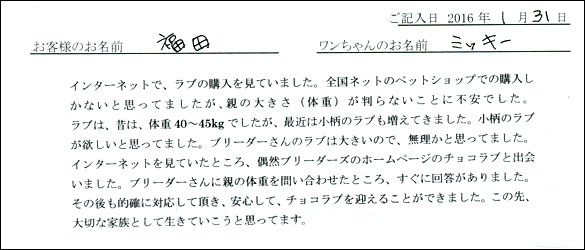 ご記入日 2016 年 1 月 31 日
お客様のお名前 福田 ワンちゃんのお名前 ミッキー
インターネットで、ラブの購入を見ていました。全国ネットのペットショップでの購入し
かないと思ってましたが、親の大きさ（体重）が判らないことに不安でした。
ラブは、昔は、体重 40～45kg でしたが、最近は小柄のラブも増えてきました。小柄のラブ
が欲しいと思ってました。ブリーダーさんのラブは大きいので、無理かと思ってました。
インターネットを見ていたところ、偶然ブリーダーズのホームページのチョコラブと出会
いました。ブリーダーさんに親の体重を問い合わせたところ、すぐに回答がありました。
その後も的確に対応して頂き、安心して、チョコラブを迎えることができました。この先、
大切な家族として生きていこうと思ってます。